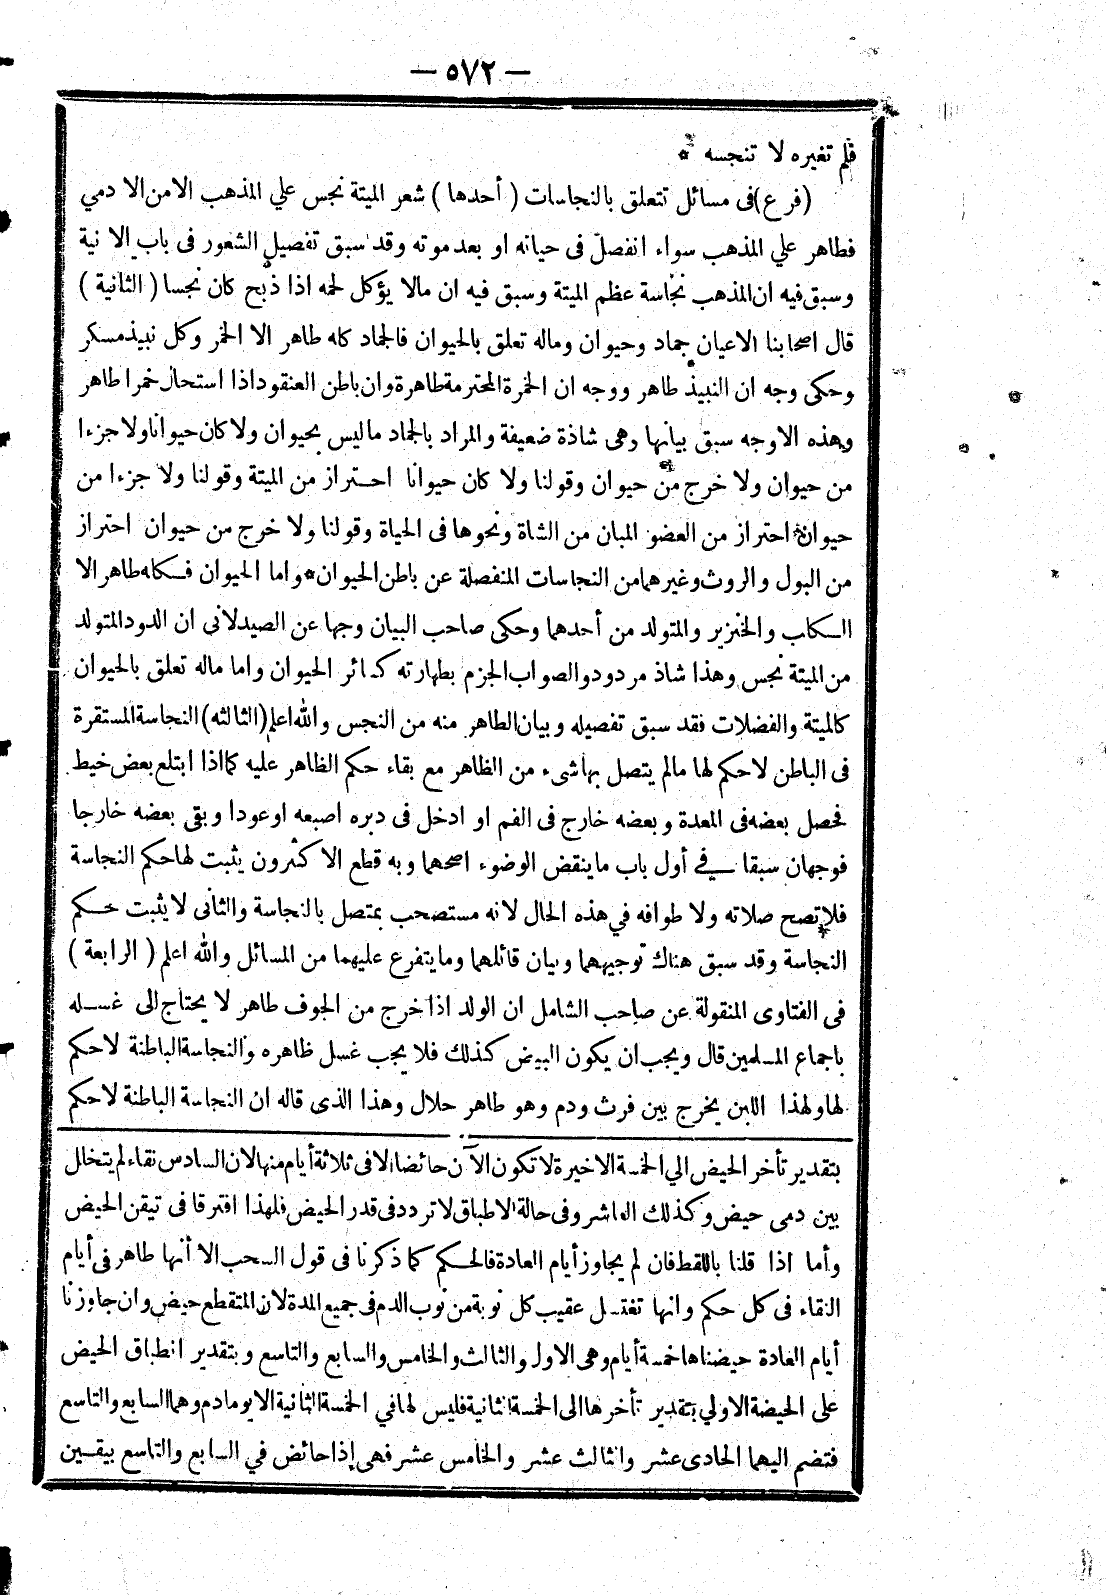 — ٥٧٢ —
فلم تغيره لا تنجسه *
(فرع) فى مسائل تتعلق بالنجاسات ( أحدها ) شعر الميتة نجس علي المذهب الا من الا دمي
فطاهر علي المذهب سواء انفصل فى حياته او بعد موته وقد سبق تفصيل الشعور فى باب الا نية
وسبق فيه ان المذهب نجاسة عظم الميتة وسبق فيه ان مالا يؤكل لحمه اذا ذبح كان نجسا ( الثانية )
قال اصحابنا الاعيان جماد وحيوان وماله تعلق بالحيوان فالجماد كله طاهر الا الخمر وكل نبيذ مسكر
وحكى وجه ان النبيذ طاهر ووجه ان الخمرة المحترمة طاهرة وان باطن العنقود اذا استحال خمرا طاهر
وهذه الاوجه سبق بيانها وهى شاذة ضعيفة والمراد بالجماد ما ليس بحيوان ولا كان حيوانا ولا جزءا
من حيوان ولا خرج من حيوان وقولنا ولا كان حيوانا احتراز من الميتة وقولنا ولا جزءا من
حيوان احتراز من العضو المبان من الشاة ونحوها فى الحياة وقولنا ولا خرج من حيوان احتراز
من البول والروث وغيرهما من النجاسات المنفصلة عن باطن الحيوان * واما الحيوان فكله طاهر الا
الكلب والخنزير والمتولد من أحدهما وحكى صاحب البيان وجها عن الصيدلانى ان الدود المتولد
من الميتة نجس وهذا شاذ مردود والصواب الجزم بطهارته كسائر الحيوان واما ماله تعلق بالحيوان
كالميتة والفضلات فقد سبق تفصيله وبيان الطاهر منه من النجس والله اعلم (الثالثه) النجاسة المستقرة
فى الباطن لا حكم لها مالم يتصل بها شىء من الظاهر مع بقاء حكم الظاهر عليه كما اذا ابتلع بعض خيط
فحصل بعضه فى المعدة وبعضه خارج فى الفم او ادخل فى دبره اصبعه او عودا وبقى بعضه خارجا
فوجهان سبقا فى أول باب ما ينقض الوضوء اصحهما وبه قطع الا كثرون يثبت لها حكم النجاسة
فلا تصح صلاته ولا طوافه في هذه الحال لانه مستصحب بمتصل بالنجاسة والثانى لا يثبت حكم
النجاسة وقد سبق هناك توجيههما وبيان قائلهما وما يتفرع عليهما من المسائل والله اعلم ( الرابعة )
فى الفتاوى المنقولة عن صاحب الشامل ان الولد اذا خرج من الجوف طاهر لا يحتاج الى غسله
باجماع المسلمين قال ويجب ان يكون البيض كذلك فلا يجب غسل ظاهره والنجاسة الباطنة لا حكم
لها ولهذا اللبن يخرج بين فرث ودم وهو طاهر حلال وهذا الذى قاله ان النجاسة الباطنة لا حكم
بتقدير تأخر الحيض الي الخمسة الاخيرة لا تكون الآن حائضا الا فى ثلاثة أيام منها لان السادس نقاء لم يتخلل
بين دمى حيض وكذلك العاشر وفى حالة الاطباق لا تردد فى قدر الحيض فلهذا افترقا فى تيقن الحيض
وأما اذا قلنا باللقط فان لم يجاوز أيام العادة فالحكم كما ذكرنا فى قول السحب الا أنها طاهر فى أيام
النقاء فى كل حكم وانها تغتسل عقيب كل نوبة من نوب الدم فى جميع المدة لان المتقطع حيض وان جاوزنا
أيام العادة حيضناها خمسة أيام وهى الاول والثالث والخامس والسابع والتاسع وبتقدير انطباق الحيض
على الحيضة الاولي بتقدير تأخرها الى الخمسة الثانية فليس لها في الخمسة الثانية الا يوما دم وهما السابع والتاسع
فتضم اليهما الحادى عشر والثالث عشر والخامس عشر فهى إذا حائض في السابع والتاسع بيقين